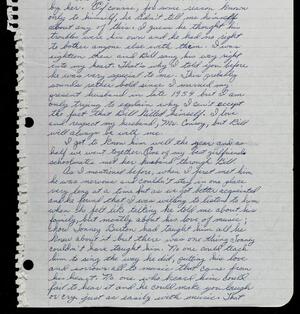 by her. Of course, for some reason known
only to himself, he didn't tell me himself
about any of this. I guess he thought his
troubles were his own and had no right
to bother anyone else with them. I was
eighteen then and Bill sang his way right
into my heart. That's why I told you before
he was very special to me. This probably
sounds rather bold since I married my
present husband in Oct 1954 but I am
only trying to explain why I can't accept
the fact that Bill killed himself. I love
and respect my husband, Mr. but Bill
will always be with me.
I got to know him well the year and a
half we went together. One of my best girlfriends
schoolmates met her husband through Bill.
As I mentioned before, when I first met him
he was nervous and couldn't stay in one place
very long at a time but as we got better acquainted
and he found that I was willing to listen to him
when he felt like talking he told me about his
family, but mostly about his love of music;
how Burton had taught him all he
knew about it but there was one thing
couldn't have taught him. No one could teach
him to sing the way he did, putting his love
and all to music that came from
his heart. No one who heard him could
fail to hear it and he could make you laugh
or cry just as easily with music. That